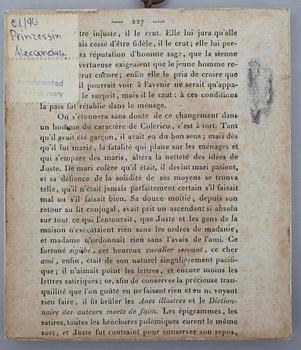 21/90
Prinzessin
Alexandra
237
être injuste, il le crut. Elle lui jura qu'elle
mais cessé d'être fidèle, il le crut; elle lui per-
sa réputation d'homme sage, que la sienne
vertueuse exigeaient que le jeune homme re-
crut encore; enfin elle le pria de croire que
il pourrait voir à l'avenir ne serait qu'appa-
le surpit, mais il le crut: à ces conditions
la paix fut rétablie dans le ménage.
On s'étonnera sans doute de ce changement dans
un homme du caractère de Colerico, c'est à tort. Tant
qu'il avait été garçon, il avait eu du bon sens; mais dès
qu'il fut marié, la fatalité qui plane sur les ménages et
qui s'empare des maris, altéra la netteté des idées de
Juste. De mari colère qu'il était, il devint mari patient,
et sa défiance de la solidité de ses moyens se trouva
telle, qu'il n'était jamais parfaitement certain s'il faisait
mal ou s'il faisait bien. Sa douce moitié, depuis son
retour au lit conjugal, avait prit un ascendant si absolu
sur tout ce qui l'entourait, que Juste et les gens de la
maison n'exécutaient rien sans les ordres de madame,
et madame n'ordonnait rien sans l'avis de l'ami. Ce
fortuné sigisbé, cet heureux cavalier servant, ce cher
ami, enfin, était de son naturel singulièrement pacifi-
que; il n'aimait point les lettres, et encore moins les
lettres satiriques; or, afin de conserver la précieuse tran-
quillité que l'on goûte en ne faisant rien et en ni, voyant
rien faire, il fit brûler les Anes illustres et le Diction-
naire des auteurs morts de faim. Les épigrammes, les
satires, toutes les brochures polémiques eurent le même
sort, et Juste fut contraint pour conserver son repos,